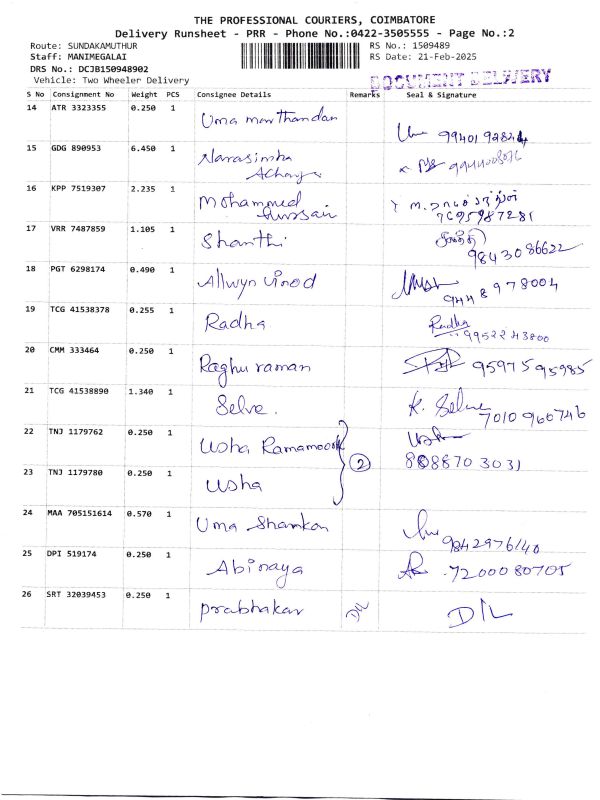 THE PROFESSIONAL COURIERS, COIMBATORE
Delivery Runsheet - PRR - Phone No.:0422-3505555 - Page No.:2
Route: SUNDAKAMUTHUR RS No.: 1509489
Staff: MANIMEGALAI RS Date: 21-Feb-2025
DRS No.: DCJB150948902
DOCUMENT DELIVERY
Vehicle: Two Wheeler Delivery
S No Consignment No Weight PCS Consignee Details Remarks Seal & Signature
14 ATR 3323355 0.250 1 Uma marthandan
15 GDG 890953 6.450 1 Narasimha
Acharya
16 KPP 7519307 2.235 1 Mohammed
Hussain 7695987281
17 VRR 7487859 1.105 1 Shanthi சாந்தி
9843086622
18 PGT 6298174 0.490 1 Allwyn vinod
9448978004
19 TCG 41538378 0.255 1 Radha Radha
9952243800
20 CMM 333464 0.250 1 Raghu raman 9597595985
21 TCG 41538890 1.340 1 Selva. K. Selva
7010960746
22 TNJ 1179762 0.250 1 Usha Ramamoorth Usha
2 8088703031
23 TNJ 1179780 0.250 1 Usha
24 MAA 705151614 0.570 1 Uma Shankar
9842976140
25 DPI 519174 0.250 1 Abinaya 7200080705
26 SRT 32039453 0.250 1 prabhakar D/L D/L